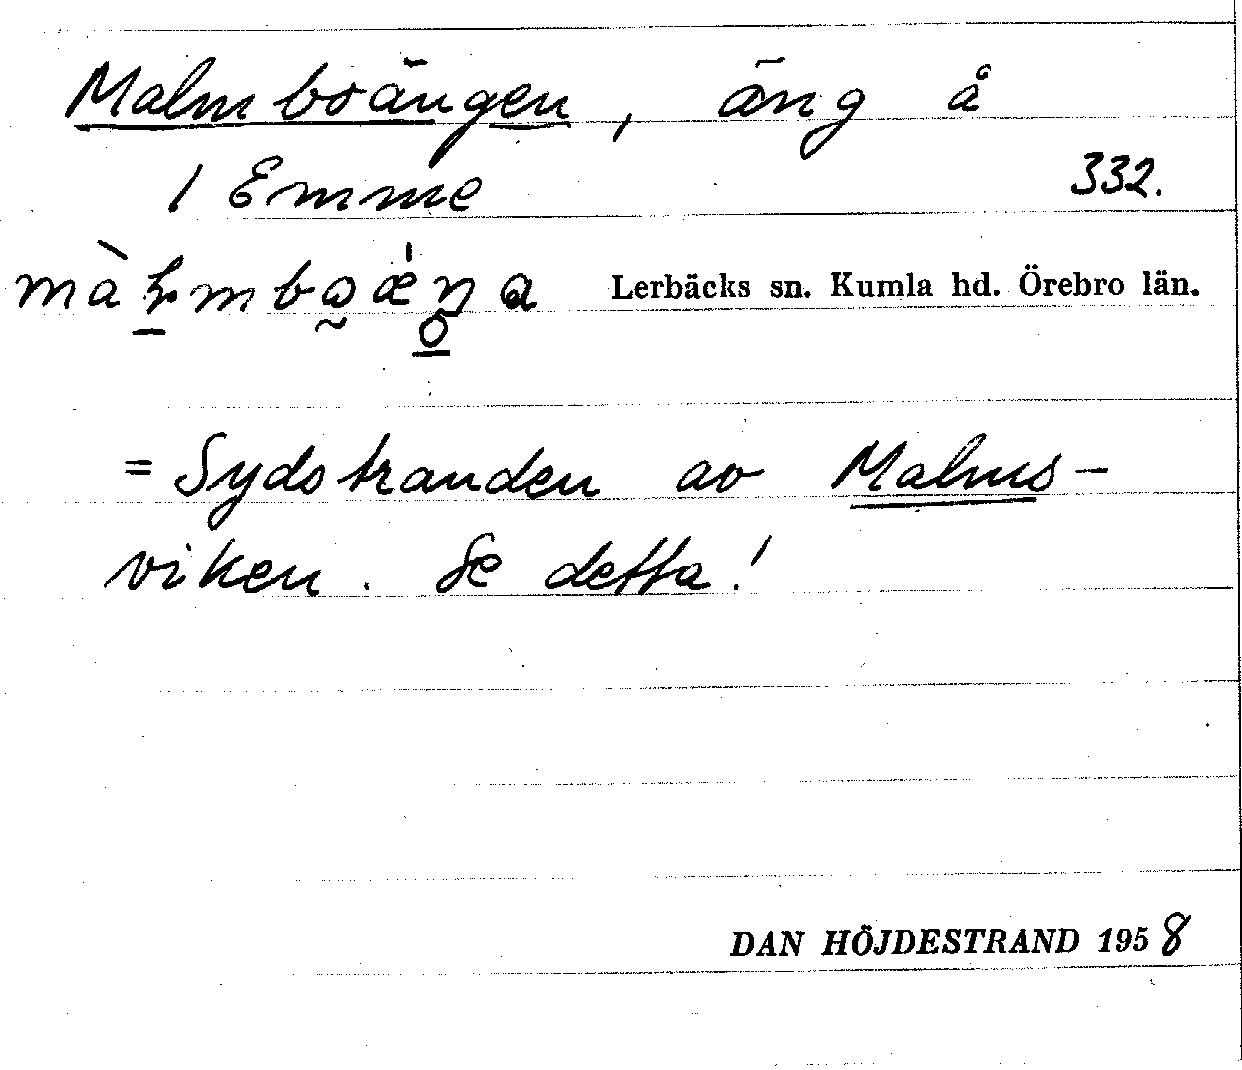 Malmboängen, äng å
1 Emme 332.
Lerbäcks sn. Kumla hd. Örebro län.
= Sydstranden av Malms-
viken. Se detta!
DAN HÖJDESTRAND 1958